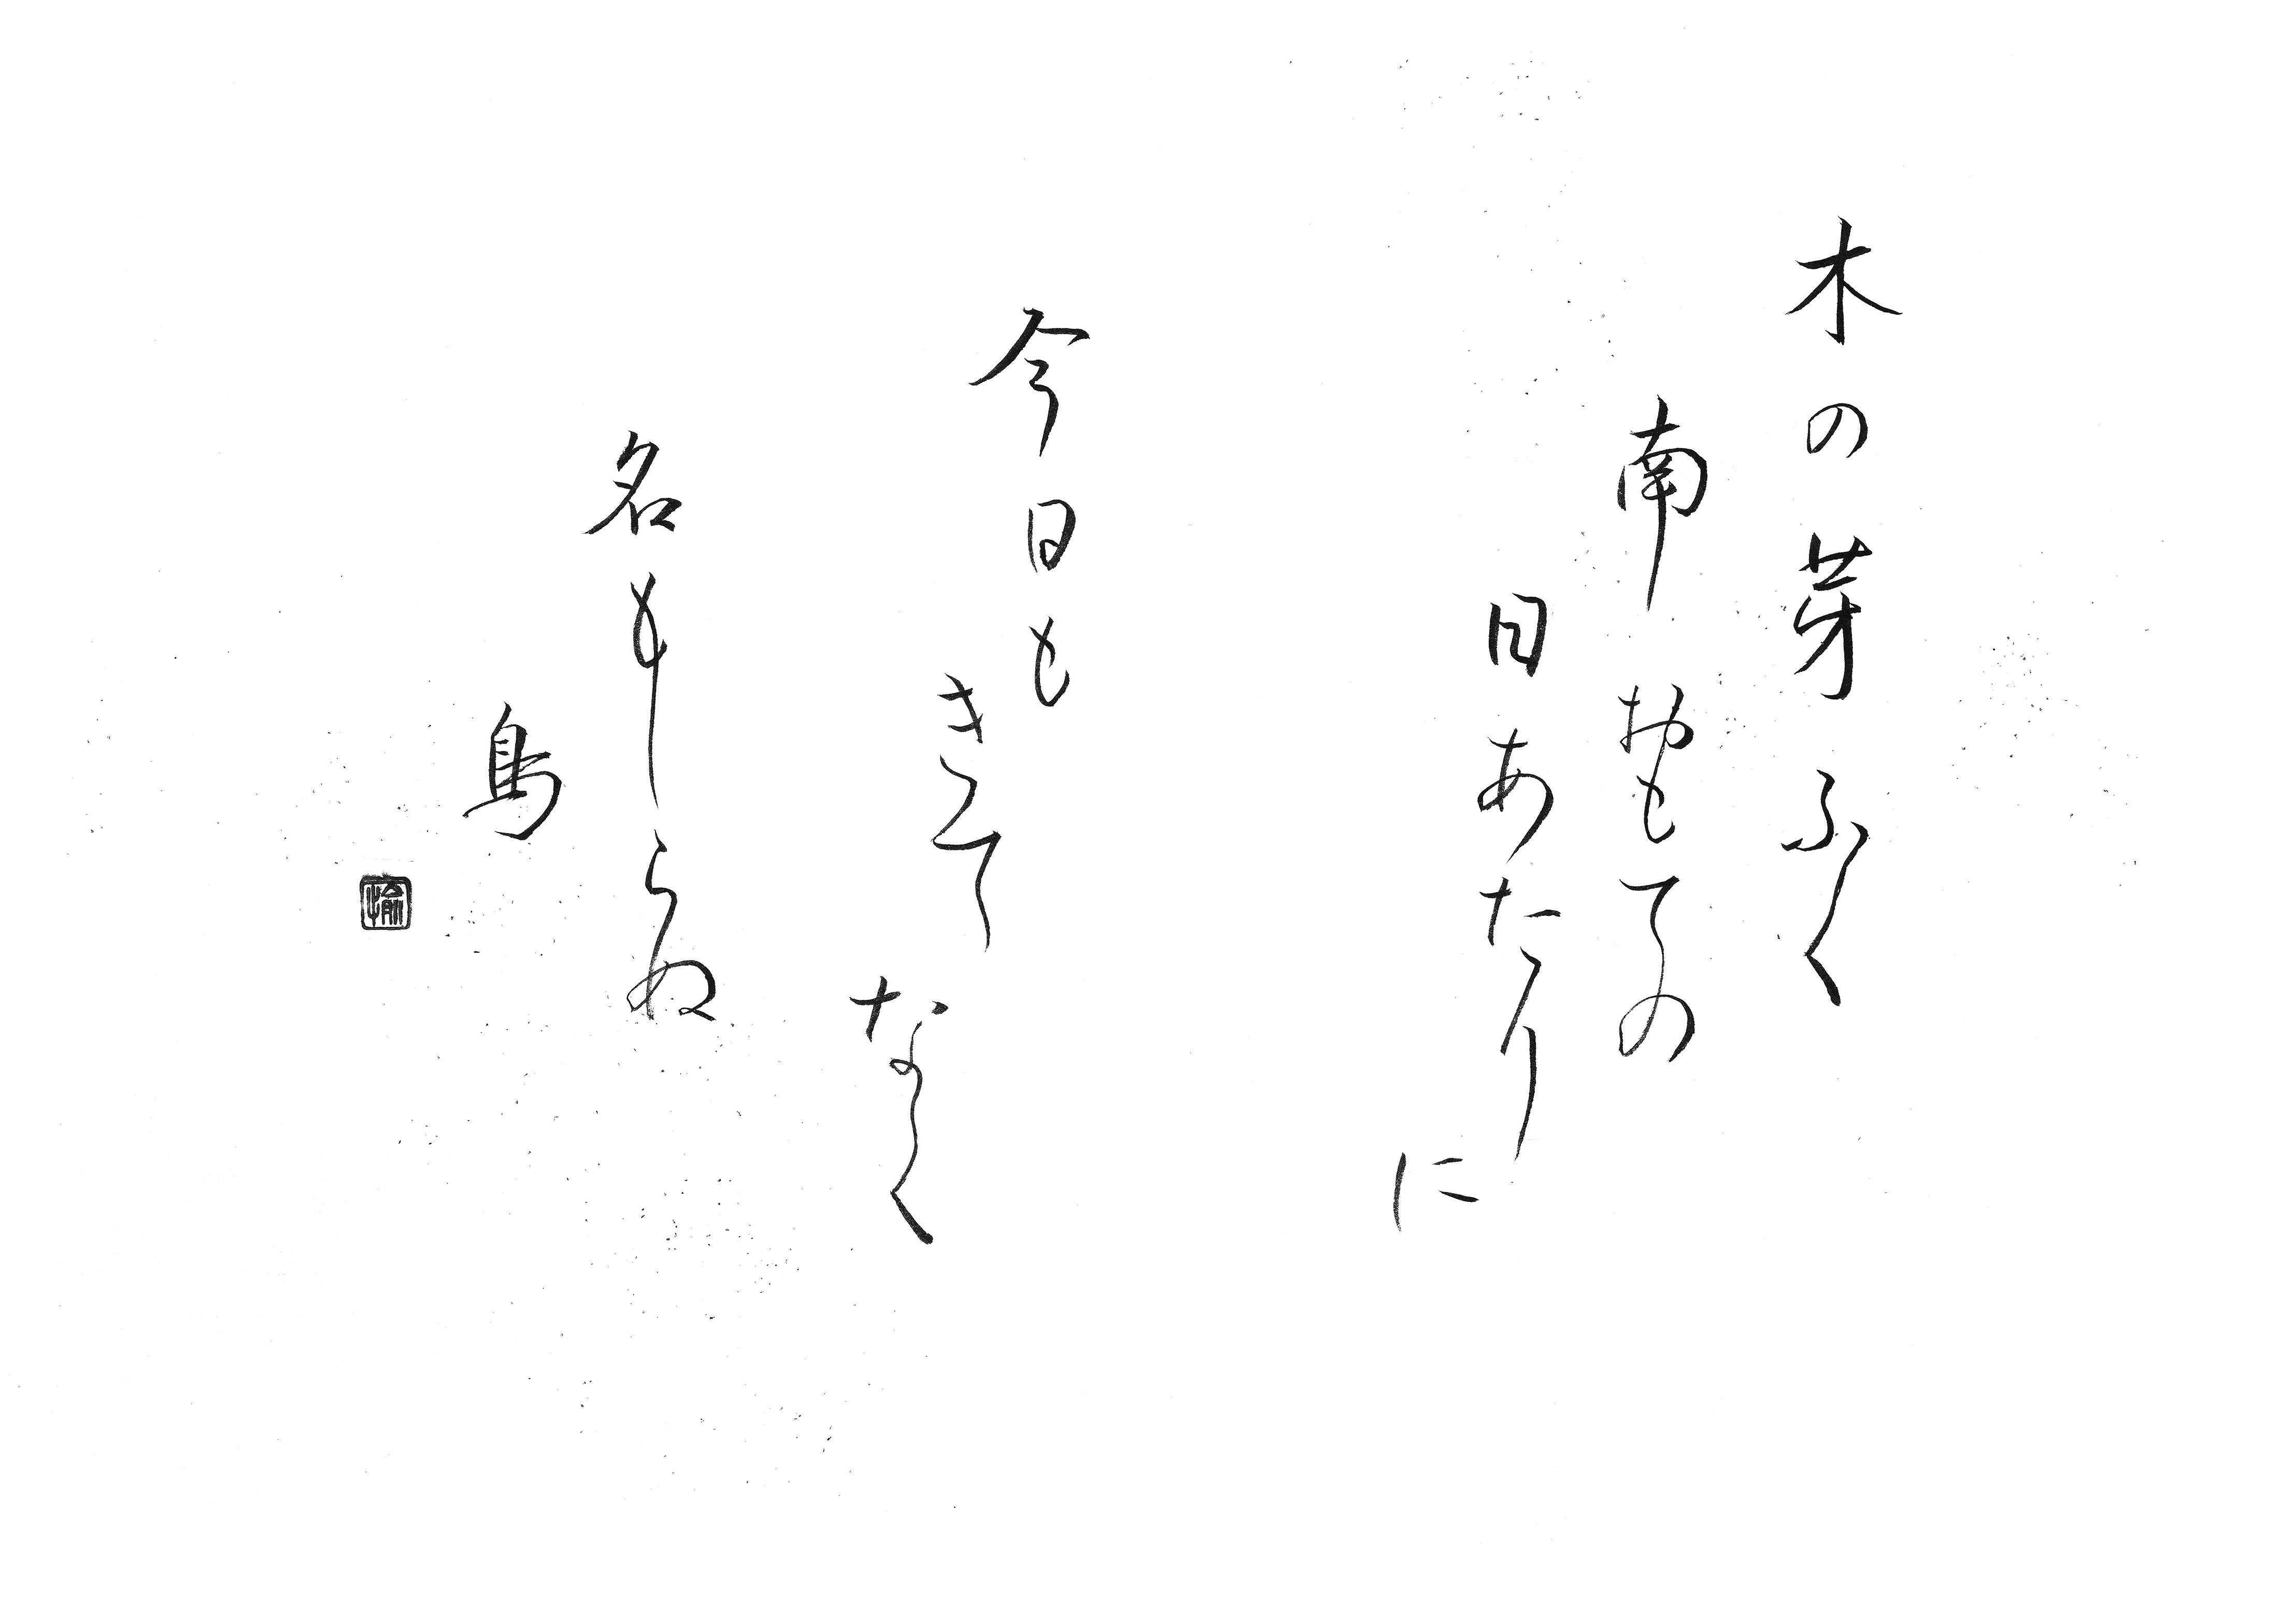 木の芽ふく
南おもての
日あたり
に
今日も
きて
なく
名もしらぬ
鳥
愉